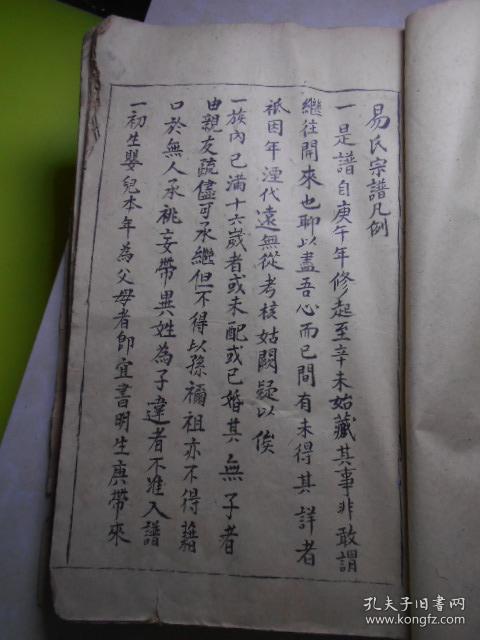 易氏宗譜凡例
一是譜自庚午年修起至辛未始藏其事非敢謂
繼往開來也聊以盡吾心而已間有未得其詳者
祇因年湮代遠無從考核姑闕疑以俟
一族內已滿十六歲者或未配或已婚其無子者
由親及疏儘可承繼但不得以孫禰祖亦不得藉
口於無人承祧妄帶異姓為子違者不准入譜
一初生嬰兒本年為父母者即宜書明生庚帶來
孔夫子旧书网
www.kongfz.com